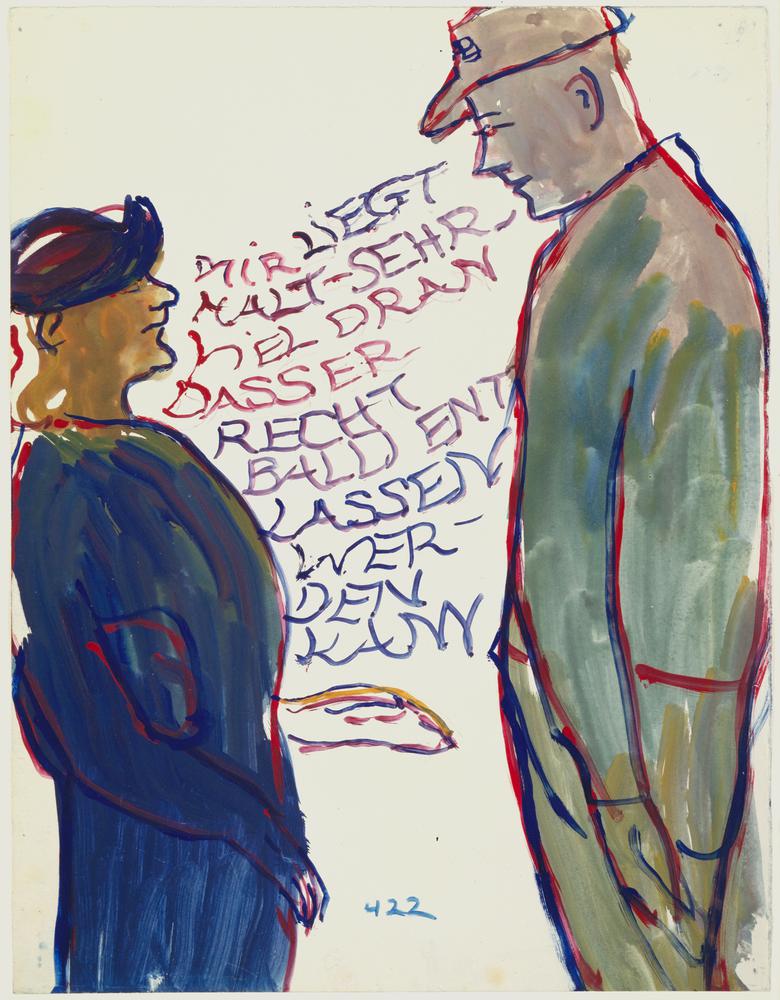 MIR LIEGT
HALT-SEHR
VIEL DRAN
DASS ER
RECHT
BALD ENT
LASSEN
WER-
DEN
KANN
422